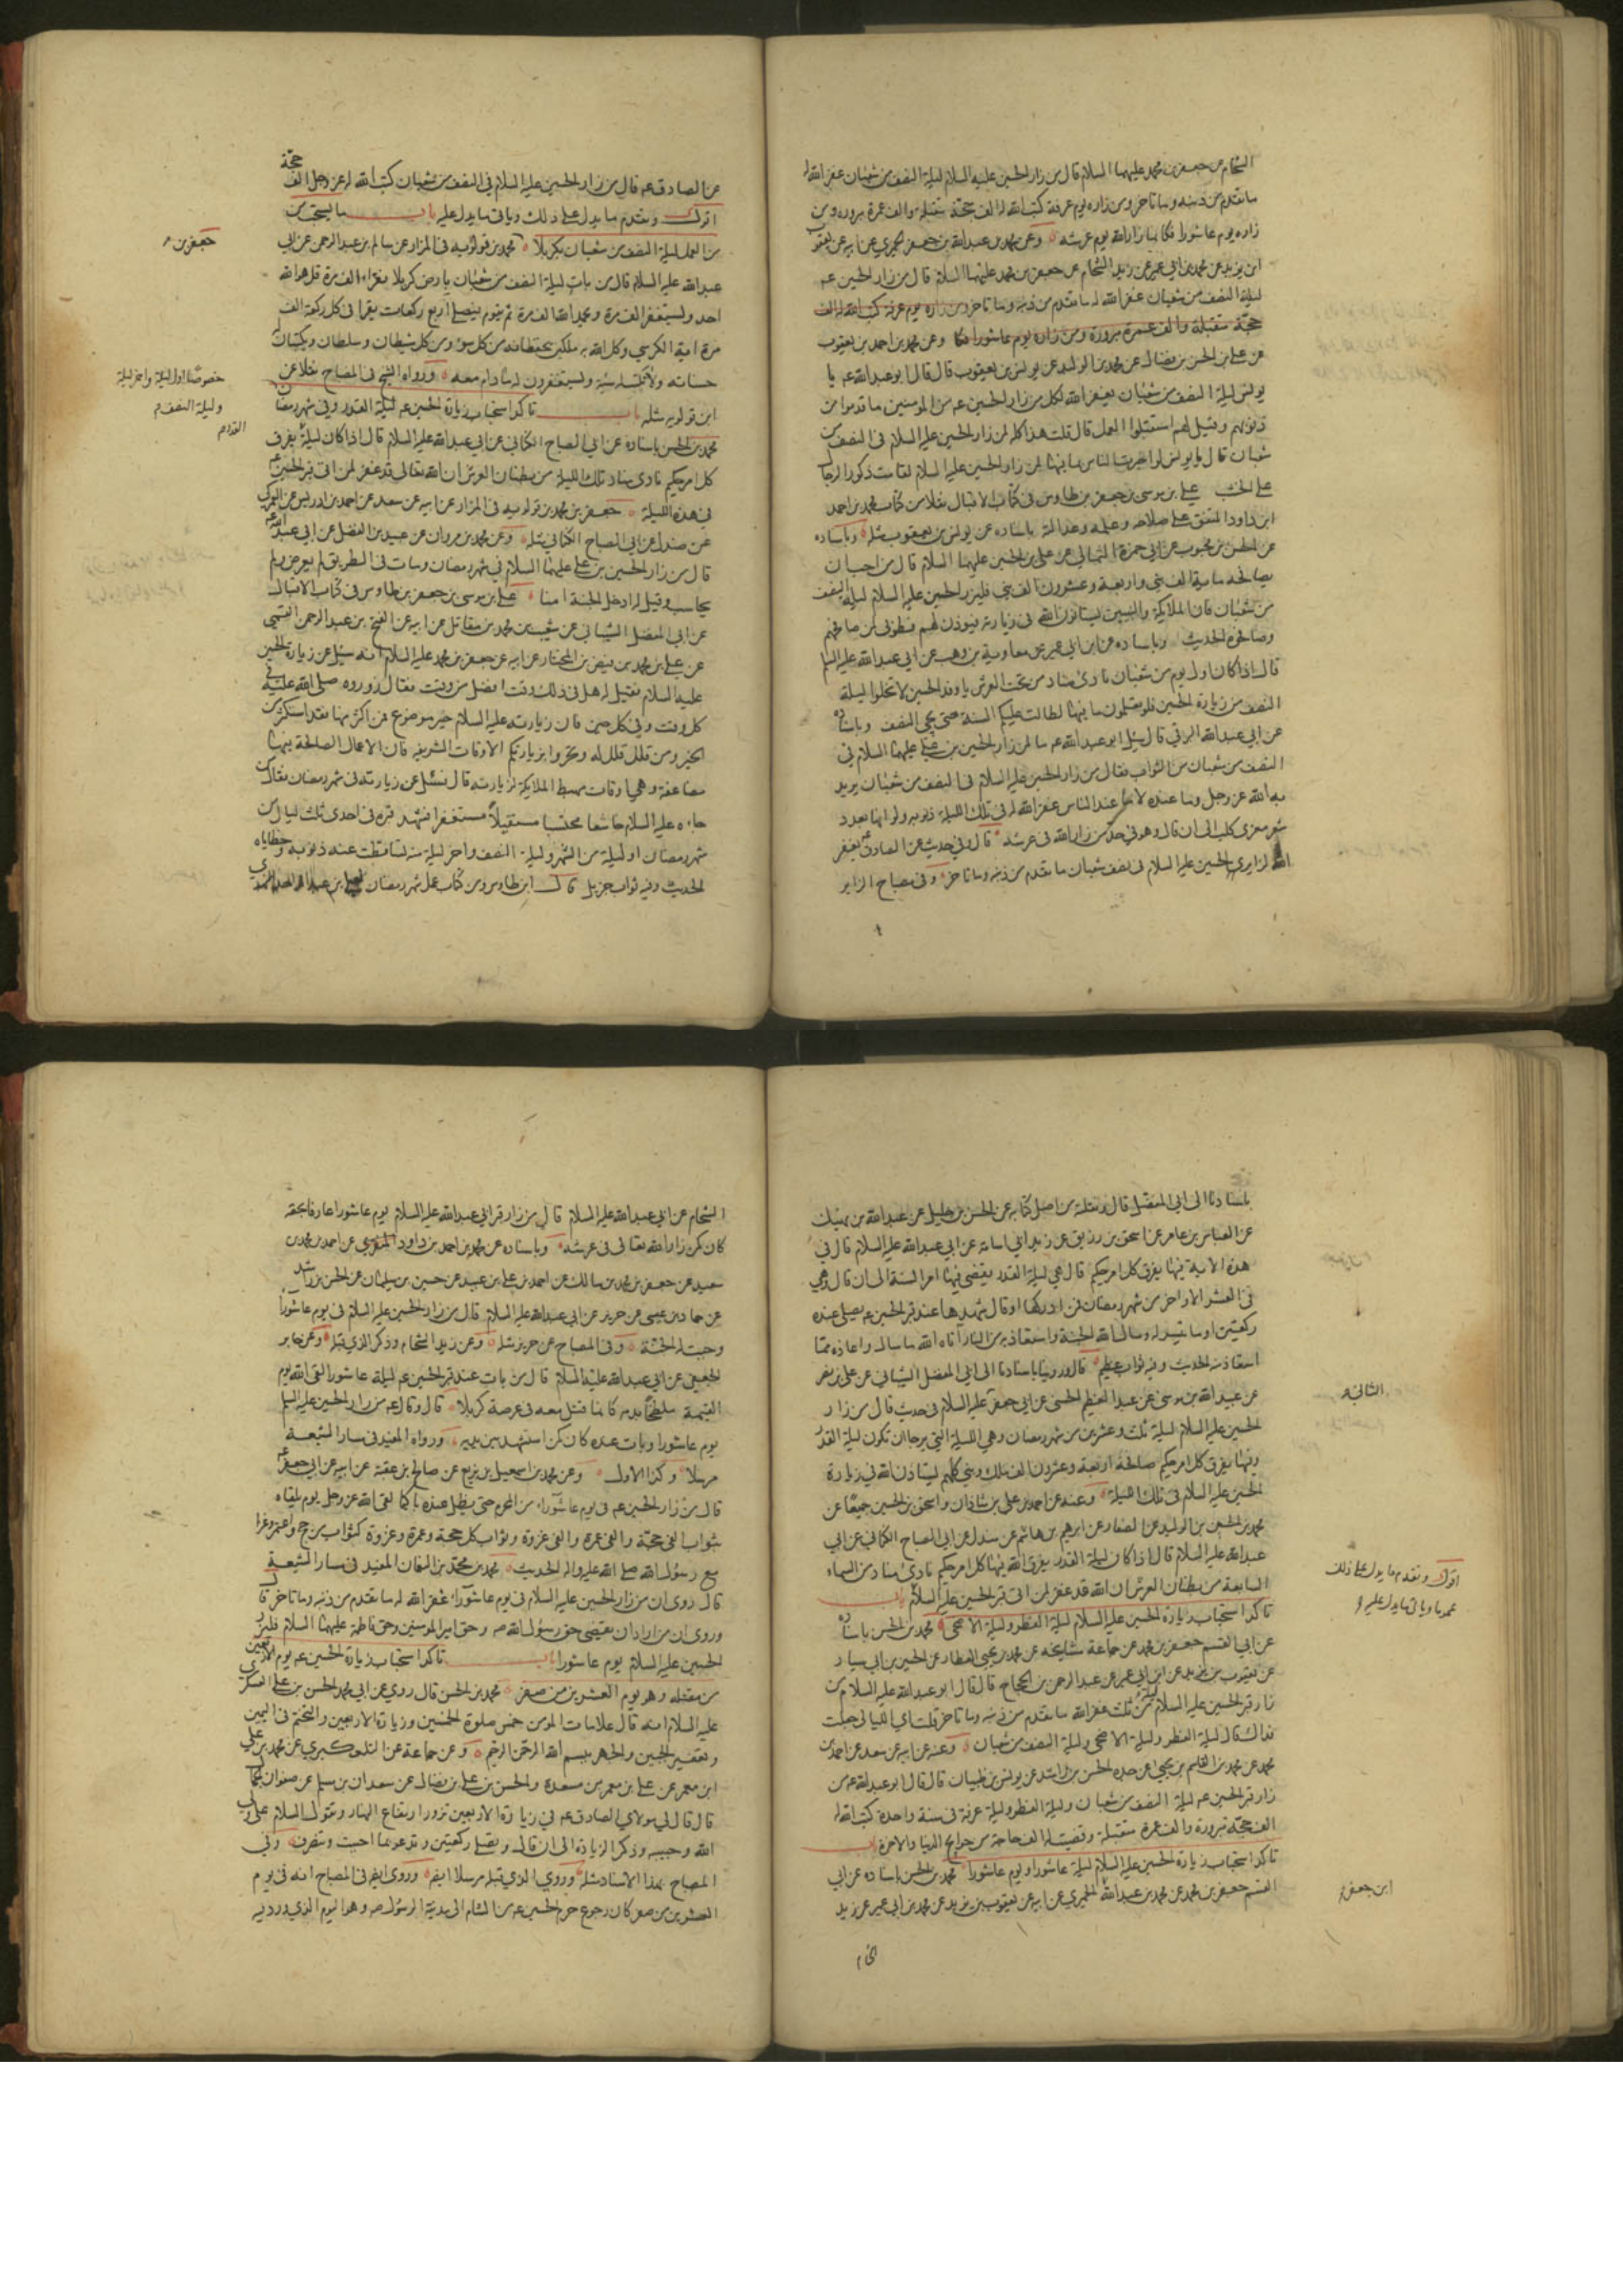 الشحام عن جعفر بن محمد عليهما السلام قال من زار الحسين عليه السلام ليلة النصف من شعبان غفر الله له
ما تقدم من ذنبه وما تاخر ومن زاره يوم عرفة كتب الله له الف حجة متقبلة والف عمرة مبرورة ومن
زاره يوم عاشورا فكانما زار الله يوم عرشه وعن محمد بن عبد الله بن جعفر الحميري عن ابيه عن يعقوب
ابن يزيد عن محمد بن ابي عمير عن زيد الشحام عن جعفر بن محمد عليهما السلام قال من زار الحسين عم
ليلة النصف من شعبان غفر الله له ما تقدم من ذنبه وما تاخر ومن زاره يوم عرفة كتب الله له الف
حجة متقبلة والف عمرة مبرورة ومن زاره يوم عاشورا فكا وعن محمد بن احمد بن يعقوب
عن علي بن الحسن بن فضال عن محمد بن الوليد عن يونس بن يعقوب قال قال ابو عبد الله عم يا
يونس ليلة النصف من شعبان يغفر الله لكل من زار الحسين عم من المومنين ما قدموا من
ذنوبهم وقيل لهم استقبلوا العمل قال قلت هذا كله لمن زار الحسين عليه السلام في النصف من
شعبان قال يا يونس لو اخبرت الناس بما فيها لمن زار الحسين عليه السلام لقامت ذكور الرجال
على الخشب علي بن موسى بن جعفر بن طاوس في كتاب الاقبال نقلا من كتاب محمد بن احمد
ابن داود المتفق على صلاحه وعلمه وعدالته باسناده عن يونس بن يعقوب مثله وباسناده
عن الحسن بن محبوب عن ابي حمزة الثمالي عن علي بن الحسين عليهما السلام قال من احب ان
يصافحه ماية الف نبي واربعة وعشرون الف نبي فليزر الحسين عليه السلام ليلة النصف
من شعبان فان الملايكة والنبيين يستاذنون الله في زيارته فيوذن لهم فطوبى لمن صافحهم
وصافحوه الحديث وباسناده عن ابن ابي عمير عن معاوية بن وهب عن ابي عبد الله عليه السلم
قال اذا كان اول يوم من شعبان نادى مناد من تحت العرش يا وفد الحسين لا تخلوا ليلة
النصف من زيارة الحسين فلو تعلمون ما فيها لطالت عليكم السنة حتى يجي النصف وباسناده
عن ابي عبد الله البرقي قال سئل ابو عبد الله عم ما لمن زار الحسين بن علي عليهما السلام في
النصف من شعبان من الثواب فقال من زار الحسين عليه السلام في النصف من شعبان يريد
به الله عز وجل وما عنده لا ما عند الناس غفر الله له في تلك الليلة ذنوبه ولو انها بعدد
شعر معزى كلب الى ان قال وهو في حد من زار الله في عرشه قال وفي حديث عن الصادق عم يغفر
الله لزايري الحسين عليه السلام في نصف شعبان ما تقدم من ذنبه وما تاخر وفي مصباح الزاير
عن الصادق عم قال من زار الحسين عليه السلام في النصف من شعبان كتب الله له عز وجل الف حجة
اقول وتقدم ما يدل على ذلك وياتي ما يدل عليه باب ما يستحب من
من العمل ليلة النصف من شعبان بكربلا محمد بن قولويه في المزار عن سالم بن عبد الرحمن عن ابي
عبد الله عليه السلام قال من بات ليلة النصف من شعبان بارض كربلا يقرا الف مرة قل هو الله
احد ويستغفر الف مرة ويحمد الله الف مرة ثم يقوم فيصلي اربع ركعات يقرا في كل ركعة الف
مرة اية الكرسي وكل الله به ملكين يحفظانه من كل سوء ومن كل شيطان وسلطان ويكتبان له
حسناته ولا تكتب له سيئة ويستغفرون له ما دام معه ورواه الشيخ في المصباح نقلا عن
ابن قولويه مثله باب تاكد استحباب زيارة الحسين عم ليلة القدر وفي شهر رمضان
محمد بن الحسن باسناده عن ابي الصباح الكناني عن ابي عبد الله عليه السلام قال اذا كان ليلة يفرق
كل امر حكيم نادى مناد تلك الليلة من بطنان العرش ان الله تعالى قد غفر لمن اتى قبر الحسين عم
في هذه الليلة جعفر بن محمد بن قولويه في المزار عن ابيه عن سعد عن احمد بن ادريس عن العمركي
عن صندل عن ابي الصباح الكناني مثله وعن محمد بن مروان عن عبيد بن الفضل عن ابي عبد الله عم
قال من زار الحسين بن علي عليهما السلام في شهر رمضان ومات في الطريق لم يعرض ولم
يحاسب وقيل له ادخل الجنة امنا علي بن موسى بن جعفر بن طاوس في كتاب الاقبال
عن ابي المفضل الشيباني عن شعيب بن محمد بن مقاتل عن ابيه عن الفتح بن عبد الرحمن القمي
عن علي بن محمد بن فيض بن المختار عن ابيه عن جعفر بن محمد عليه السلام انه سئل عن زيارة الحسين
عليه السلام فقيل له هل في ذلك وقت افضل من وقت فقال زوروه صلى الله عليه في
كل وقت وفي كل حين فان زيارته عليه السلام خير موضوع فمن اكثر منها فقد استكثر من
الخير ومن قلل قلل له وتحروا بزيارتكم الاوقات الشريفة فان الاعمال الصالحة فيها
مضاعفة وهي اوقات مهبط الملايكة لزيارته قال فسئل عن زيارته في شهر رمضان فقال من
جاءه عليه السلام خاشعا محتسبا مستقيلا مستغفرا فشهد قبره في احدى ثلث ليال من
شهر رمضان اول ليلة من الشهر وليلة النصف واخر ليلة منه تساقطت عنه ذنوبه وخطاياه
الحديث وفيه ثواب جزيل قال ابن طاوس ومن كتاب عمل شهر رمضان لعلي بن عبد الواحد النهدي
جعفر بن
خصوصا اول ليلة واخر ليلة
وليلة النصف م
باسنادنا الى ابي المفضل قال ونقلته من اصل كتابه عن الحسن بن خليل عن عبد الله بن نهيك
عن العباس بن عامر عن اسحق بن زريق عن زيد ابي اسامة عن ابي عبد الله عليه السلام قال في
هذه الاية فيها يفرق كل امر حكيم قال هي ليلة القدر يقضى فيها امر السنة الى ان قال وهي
في العشر الاواخر من شهر رمضان فمن ادركها او قال شهدها عند قبر الحسين عم يصلي عنده
ركعتين او ما تيسر له وسال الله الجنة واستعاذ به من النار آتاه الله ما سال واعاذه مما
استعاذ منه الحديث وفيه ثواب عظيم قال وروينا باسنادنا الى ابي المفضل الشيباني عن علي بن نصر
عن عبيد الله بن موسى عن عبد العظيم الحسني عن ابي جعفر عليه السلام في حديث قال من زار
الحسين عليه السلام ليلة ثلث وعشرين من شهر رمضان وهي الليلة التي يرجا ان تكون ليلة القدر
وفيها يفرق كل امر حكيم صافحه اربعة وعشرون الف ملك ونبي كلهم يستاذن الله في زيارة
الحسين عليه السلام في تلك الليلة وعنه عن احمد بن علي بن شاذان واسحق بن الحسين جميعا عن
محمد بن الحسين بن الوليد عن الصفار عن ابرهيم بن هاشم عن صندل عن ابي الصباح الكناني عن ابي
عبد الله عليه السلام قال اذا كان ليلة القدر يفرق الله فيها كل امر حكيم نادى مناد من السماء
السابعة من بطنان العرش ان الله قد غفر لمن اتى قبر الحسين عليه السلام باب
تاكد استحباب زيارة الحسين عليه السلام ليلة الفطر وليلة الاضحى محمد بن الحسن باسناده
عن ابي القسم جعفر بن محمد عن جماعة مشايخه عن محمد بن يحيى العطار عن الحسين بن ابي سيار
عن يعقوب بن يزيد عن ابن ابي عمير عن عبد الرحمن بن الحجاج قال قال ابو عبد الله عليه السلام من
زار قبر الحسين عليه السلام ليلة من ثلث غفر الله ما تقدم من ذنبه وما تاخر قلت اي الليالي جعلت
فداك قال ليلة الفطر وليلة الاضحى وليلة النصف من شعبان وعنه عن ابيه عن سعد عن احمد بن
محمد عن محمد بن القاسم بن يحيى عن جده الحسن بن راشد عن يونس بن ظبيان قال قال ابو عبد الله عم من
زار قبر الحسين عم ليلة النصف من شعبان وليلة الفطر وليلة عرفة في سنة واحدة كتب الله له
الف حجة مبرورة والف عمرة متقبلة وقضيت له الف حاجة من حوايج الدنيا والاخرة باب
تاكد استحباب زيارة الحسين عليه السلام ليلة عاشورا ويوم عاشورا محمد بن الحسن باسناده عن ابي
القسم جعفر بن محمد عن محمد بن عبد الله الحميري عن ابيه عن يعقوب بن يزيد عن محمد بن ابي عمير عن زيد
الثانية
اقول وتقدم ما يدل على ذلك
عموما وياتي ما يدل عليه
ابن جعفر
الشحام عن ابي عبد الله عليه السلام قال من زار قبر ابي عبد الله عليه السلام يوم عاشورا عارفا بحقه
كان كمن زار الله تعالى في عرشه وباسناده عن محمد بن احمد بن داود عن احمد بن محمد بن
سعيد عن جعفر بن محمد بن مالك عن احمد بن علي بن عبيد عن حسين بن سليمان عن الحسن بن راشد
عن حماد بن عيسى عن حريز عن ابي عبد الله عليه السلام قال من زار الحسين عليه السلام في يوم عاشورا
وجبت له الجنة وفي المصباح عن حريز مثله وعن زيد الشحام وذكر الذي قبله وعن جابر
الجعفي عن ابي عبد الله عليه السلام قال من بات عند قبر الحسين عم ليلة عاشورا لقي الله يوم
القيمة ملطخا بدمه كانما قتل معه في عرصة كربلا قال وقال عم من زار الحسين عليه السلم
يوم عاشورا وبات عنده كان كمن استشهد بين يديه ورواه المفيد في مسار الشيعة
مرسلا وكذا الاول وعن محمد بن اسمعيل بن بزيع عن صالح بن عقبة عن ابيه عن ابي جعفر عم
قال من زار الحسين عم في يوم عاشوراء من المحرم حتى يظل عنده باكيا لقي الله عز وجل يوم يلقاه
بثواب الفي حجة والفي عمرة والفي غزوة وثواب كل حجة وعمرة وغزوة كثواب من حج واعتمر وغزا
مع رسول الله صلى الله عليه واله الحديث محمد بن محمد بن النعمان المفيد في مسار الشيعة
قال روي ان من زار الحسين عليه السلام في يوم عاشوراء غفر الله له ما تقدم من ذنبه وما تاخر قال
وروي ان من اراد ان يقضي حق رسول الله صه وحق امير المومنين وحق فاطمة عليهما السلام فليزر
الحسين عليه السلام يوم عاشورا باب تاكد استحباب زيارة الحسين عم يوم الاربعين
من مقتله وهو يوم العشرين من صفر محمد بن الحسن قال روي عن ابي محمد الحسن بن علي العسكري
عليه السلام انه قال علامات المومن خمس صلوة الخمسين وزيارة الاربعين والتختم في اليمين
وتعفير الجبين والجهر ببسم الله الرحمن الرحيم وعن جماعة عن التلعكبري عن محمد بن علي
ابن معمر عن علي بن معمر بن مسعدة والحسن بن علي بن فضال عن سعدان بن مسلم عن صفوان الجمال
قال قال لي مولاي الصادق عم في زيارة الاربعين تزور ارتفاع النهار وتقول السلام على ولي
الله وحبيبه وذكر الزيارة الى ان قال وتصلي ركعتين وتدعو بما احببت وتنصرف وفي
المصباح بهذا الاسناد مثله وروي الذي قبله مرسلا ايضا وروى ايضا في المصباح انه في يوم
العشرين من صفر كان رجوع حرم الحسين عم من الشام الى مدينة الرسول صه وهو اليوم الذي ورد فيه